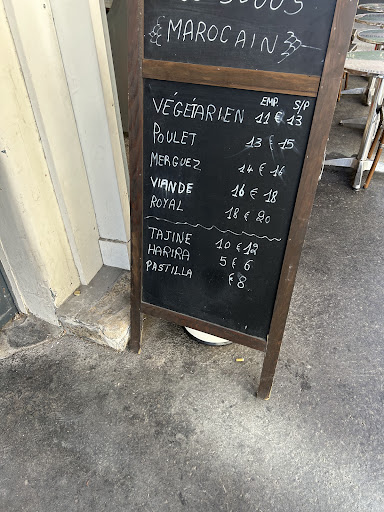 MAROCAIN
EMP. S/P
VÉGÉTARIEN 11 € 13
POULET 13 € 15
MERGUEZ 14 € 16
VIANDE 16 € 18
ROYAL 18 € 20
TAJINE 10 € 12
HARIRA 5 € 6
PASTILLA € 8